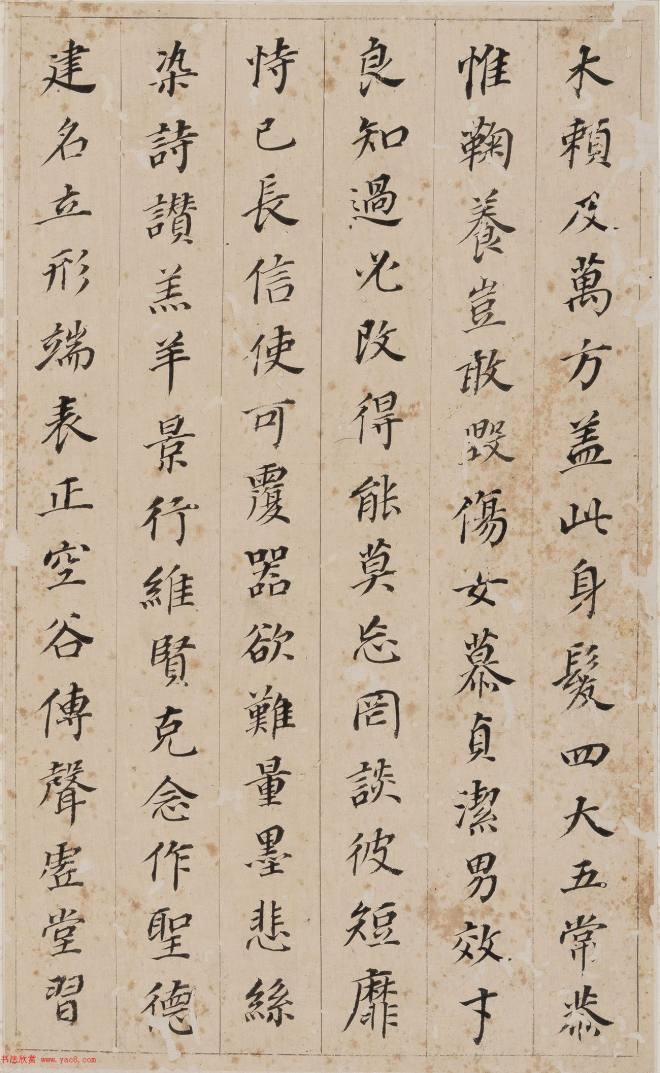 木賴及萬方蓋此身髮四大五常恭
惟鞠養豈敢毀傷女慕貞潔男效才
良知過必改得能莫忘罔談彼短靡
恃己長信使可覆器欲難量墨悲絲
染詩讚羔羊景行維賢克念作聖德
建名立形端表正空谷傳聲虛堂習
书法欣赏 www.yac8.com